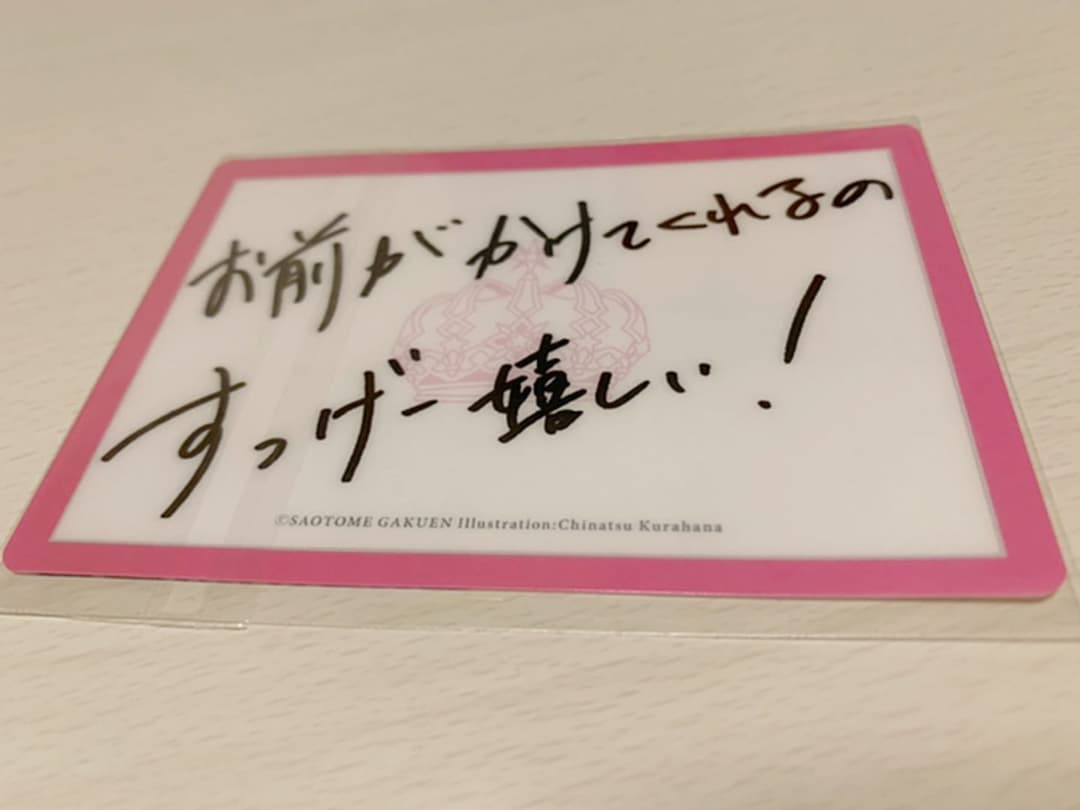 お前がかけてくれるの
すっげー嬉しい!
©SAOTOME GAKUEN Illustration:Chinatsu Kurahana